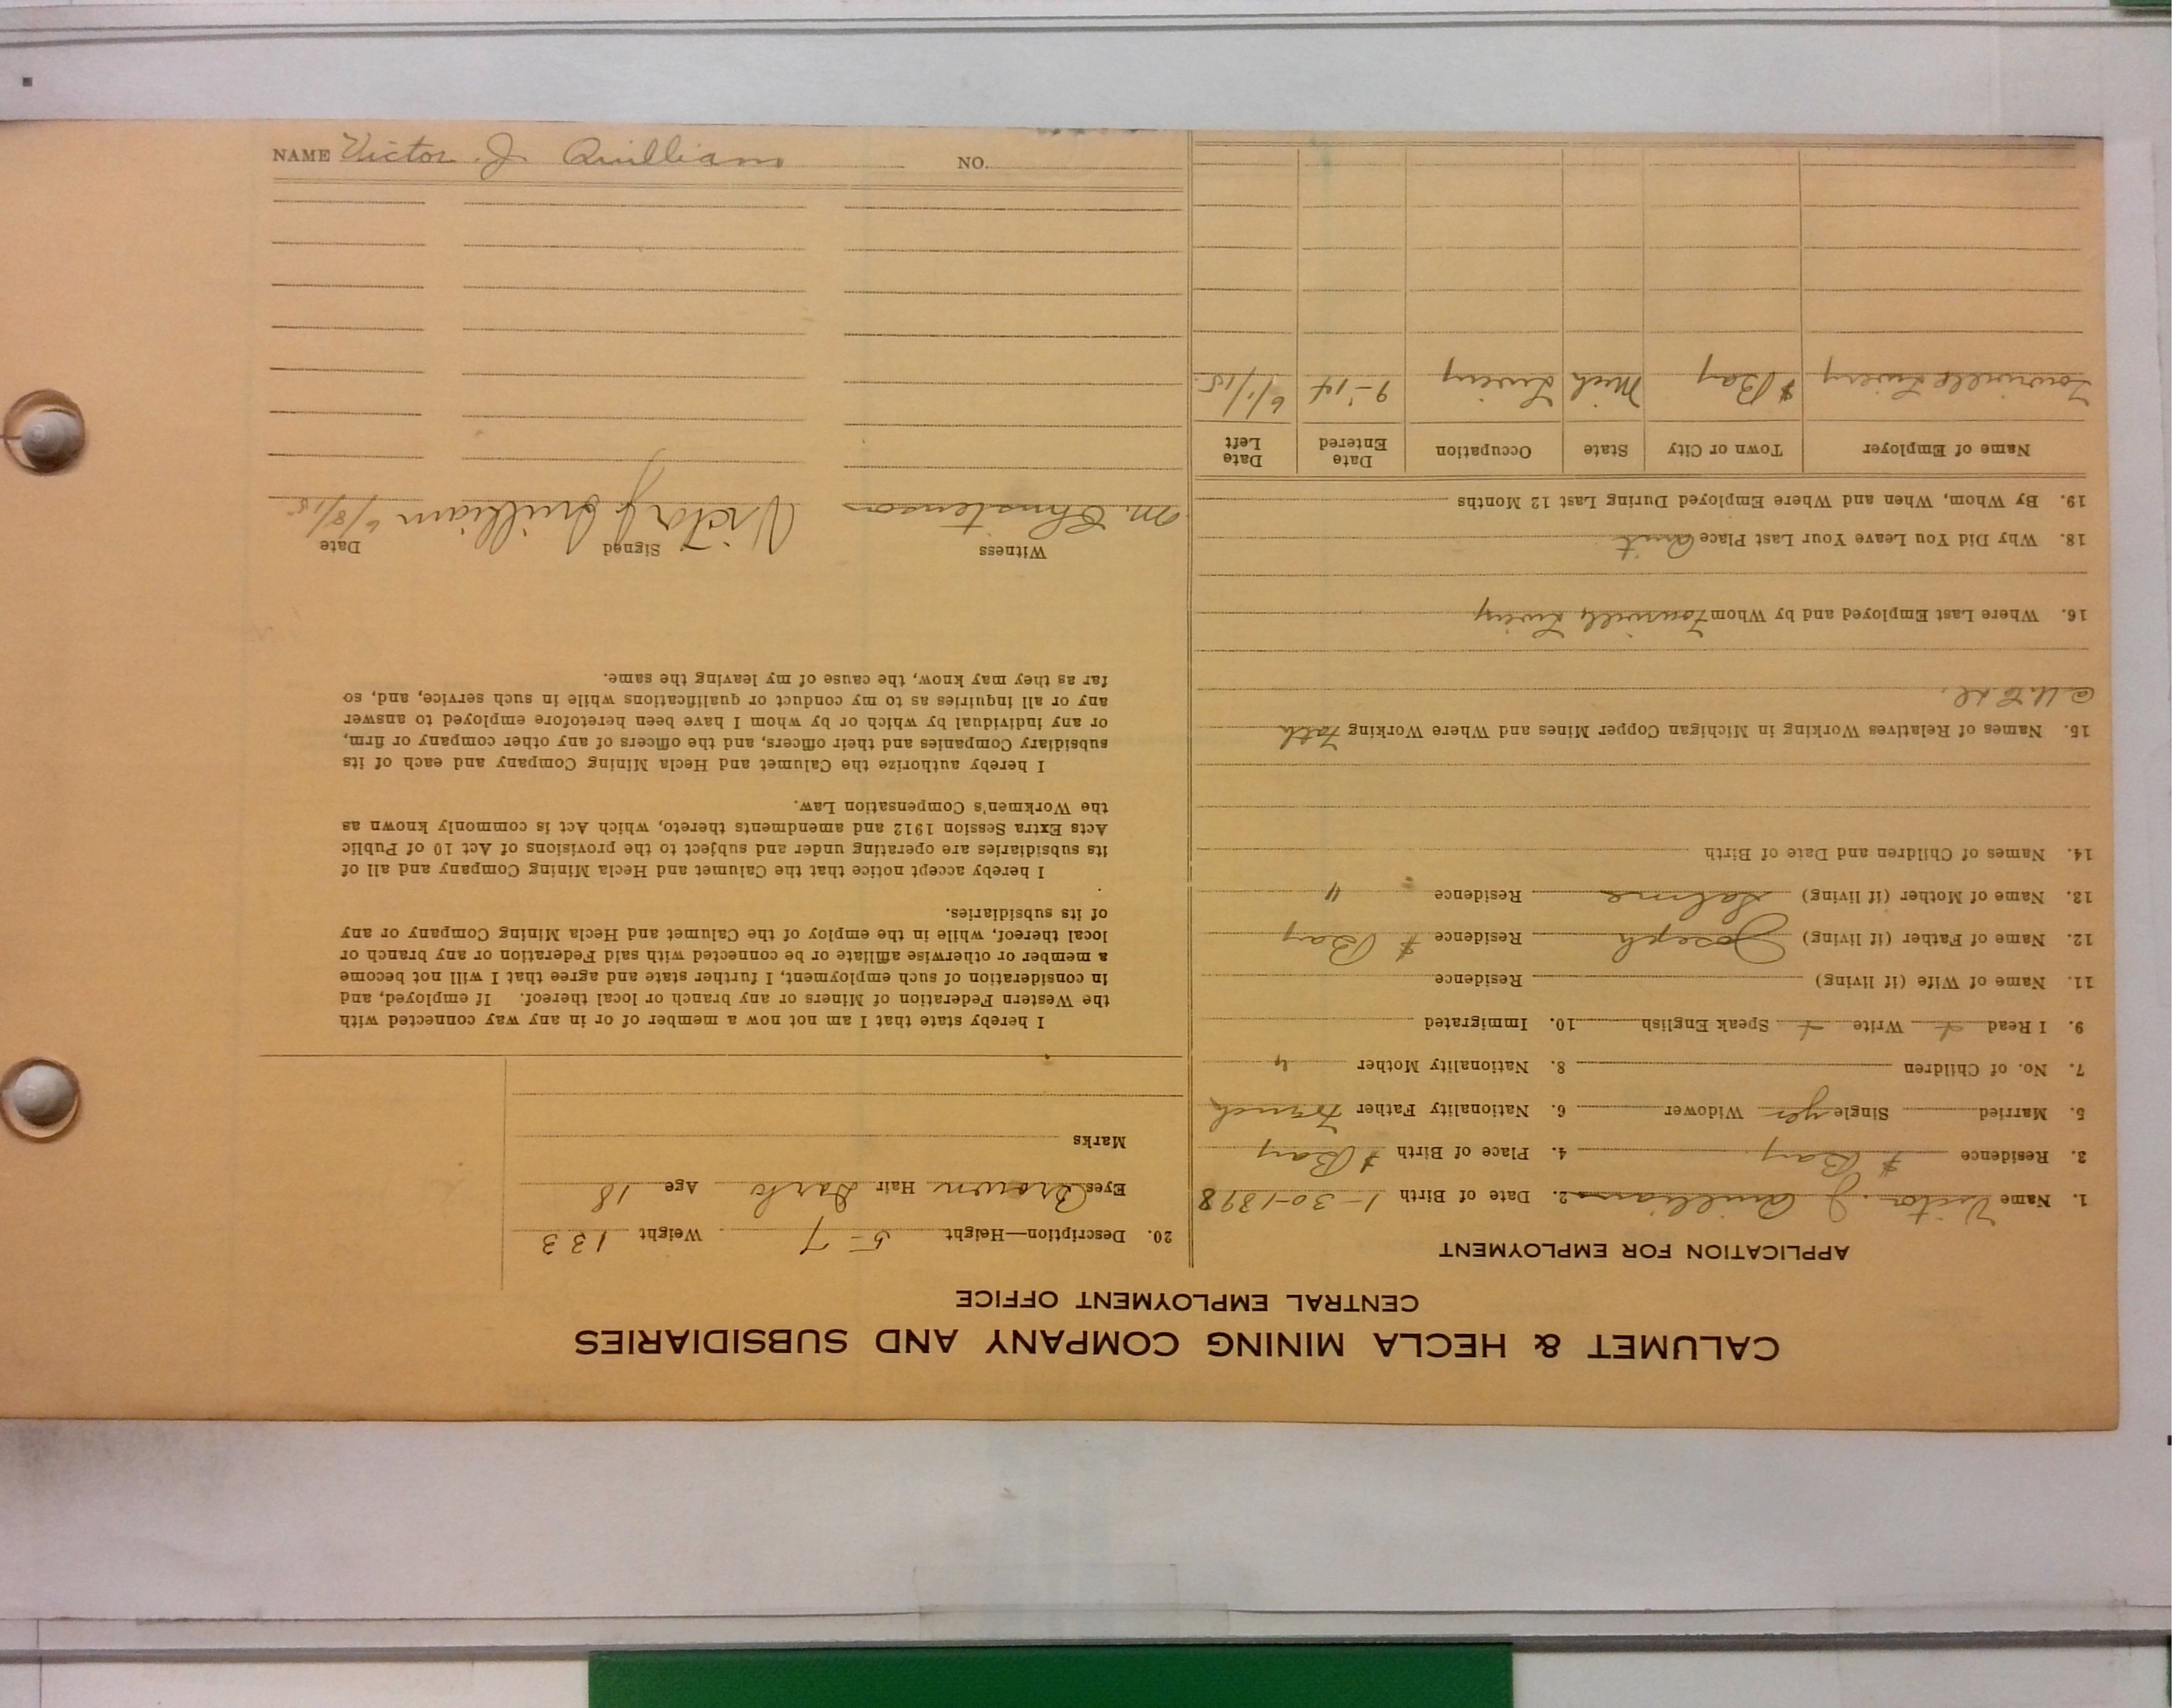 CALUMET & HECLA MINING COMPANY AND SUBSIDIARIES
CENTRAL EMPLOYMENT OFFICE
APPLICATION FOR EMPLOYMENT
1. Name Victor J. Quilliam 2. Date of Birth 1-30-1898
3. Residence Bay 4. Place of Birth Bay
5. Married Single yes Widower 6. Nationality Father French
7. No. of Children 8. Nationality Mother "
9. I Read + Write + Speak English 10. Immigrated
11. Name of Wife (if living) Residence
12. Name of Father (if living) Joseph Residence Bay
13. Name of Mother (if living) Residence "
14. Names of Children and Date of Birth
15. Names of Relatives Working in Michigan Copper Mines and Where Working Fath
16. Where Last Employed and by Whom Livery
18. Why Did You Leave Your Last Place Quit
19. By Whom, When and Where Employed During Last 12 Months
Name of Employer Town or City State Occupation Date Entered Date Left
Livery Bay Mich Livery 9-'14 6/1/15
20. Description—Height 5-7 Weight 133
Eyes Brown Hair Dark Age 18
Marks
I hereby state that I am not now a member of or in any way connected with
the Western Federation of Miners or any branch or local thereof. If employed, and
in consideration of such employment, I further state and agree that I will not become
a member or otherwise affiliate or be connected with said Federation or any branch or
local thereof, while in the employ of the Calumet and Hecla Mining Company or any
of its subsidiaries.
I hereby accept notice that the Calumet and Hecla Mining Company and all of
its subsidiaries are operating under and subject to the provisions of Act 10 of Public
Acts Extra Session 1912 and amendments thereto, which Act is commonly known as
the Workmen's Compensation Law.
I hereby authorize the Calumet and Hecla Mining Company and each of its
subsidiary Companies and their officers, and the officers of any other company or firm,
or any individual by which or by whom I have been heretofore employed to answer
any or all inquiries as to my conduct or qualifications while in such service, and, so
far as they may know, the cause of my leaving the same.
Witness Signed Date
M. Christenson Victor J Quilliam 6/8/15
NAME Victor J. Quilliam NO.